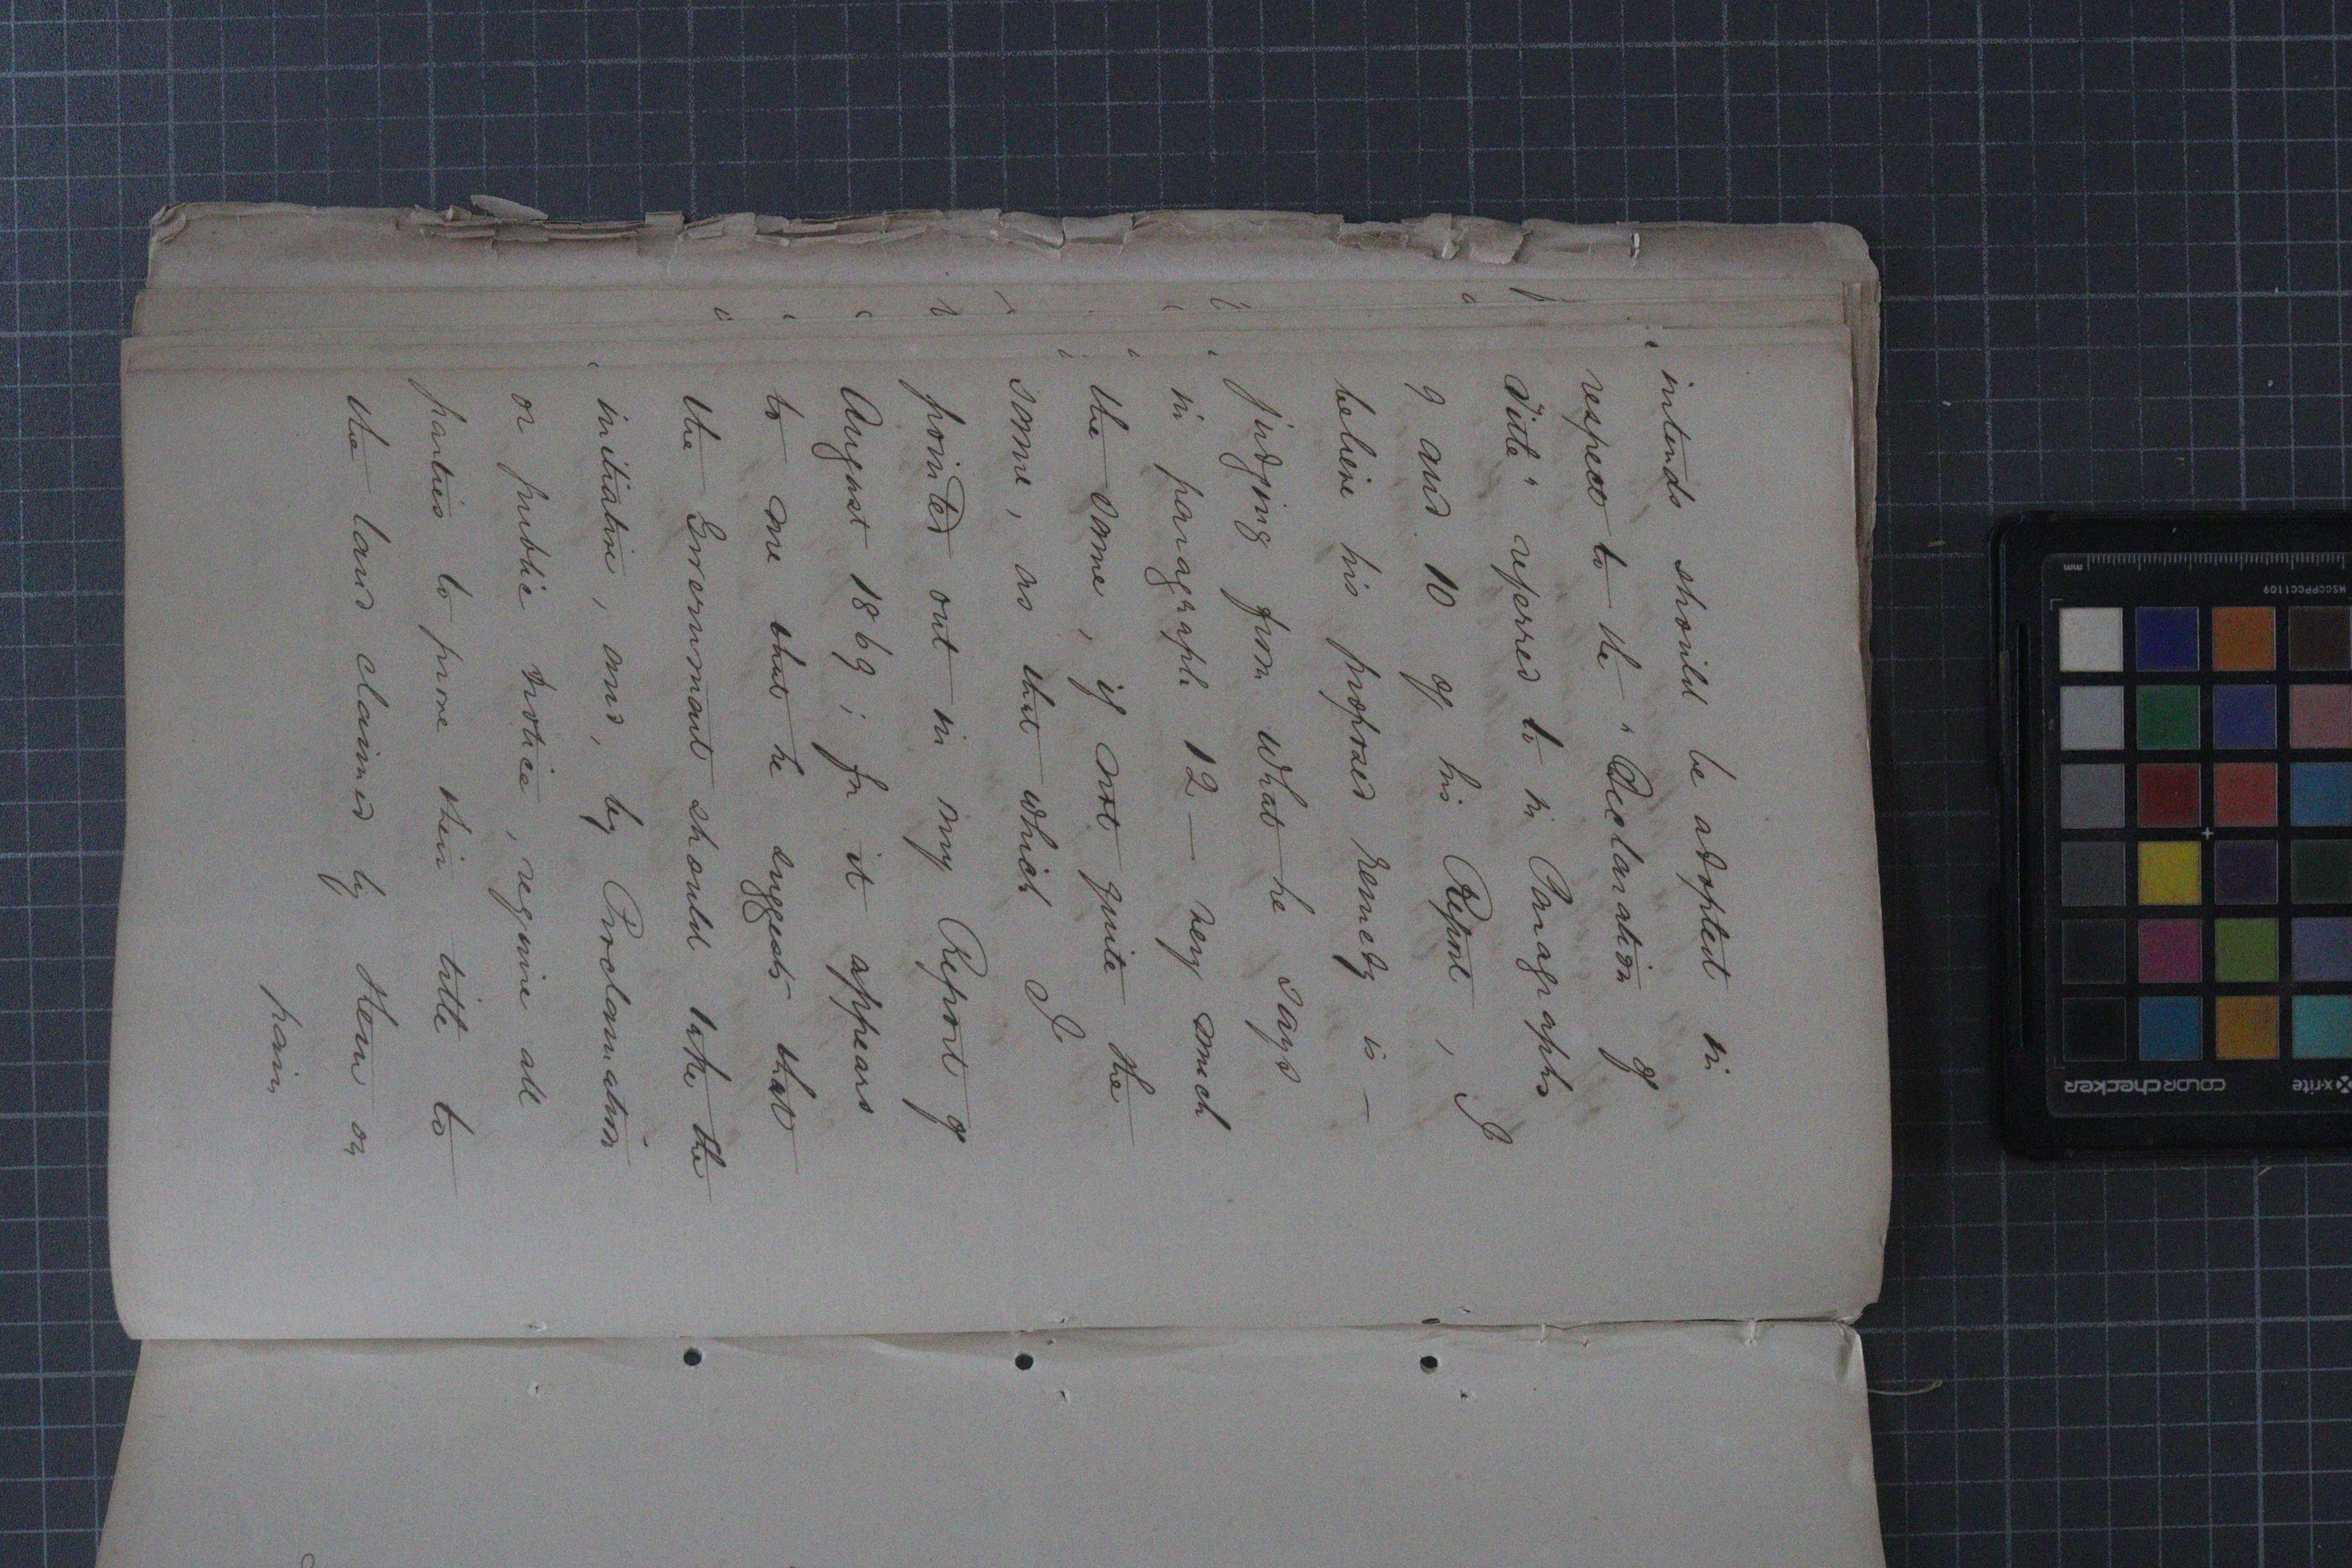 intends should be adopted in
respect to the "Declaration of
Title" referred to in Paragraphs
9 and 10 of his Report, I
believe his proposed remedy is —
judging from what he says
in paragraph 12 — very much
the same, if not quite the
same, as that which I
pointed out in my Report of
August 1869; for it appears
to me that he suggests that
the Government should take the
initiative, and, by Proclamation
or public notice, require all
parties to prove their title to
the land claimed by them on
pain
mm
MSCCPPCC1109
x-rite
colorchecker